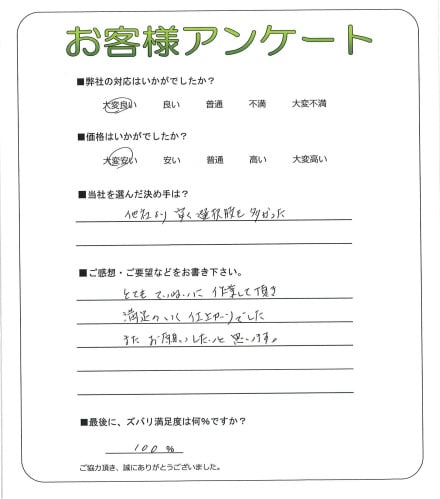 お客様アンケート
■弊社の対応はいかがでしたか？
大変良い 良い 普通 不満 大変不満
■価格はいかがでしたか？
大変安い 安い 普通 高い 大変高い
■当社を選んだ決め手は？
他社より安く選択肢も多かった
■ご感想・ご要望などをお書き下さい。
とてもていねいに作業して頂き
満足のいく仕上がりでした
またお願いしたいと思います。
■最後に、ズバリ満足度は何％ですか？
100％
ご協力頂き、誠にありがとうございました。